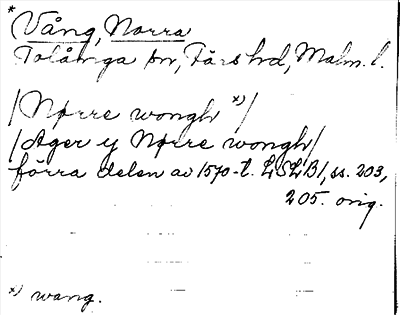 *
Vång, Norra
Tolånga sn, Färs hd, Malm. l.
/Nørre wongh *)/
/Ager y Nørre wongh/
förra delen av 1570-t. LSLB1, ss. 203,
205. orig.
*) wang.